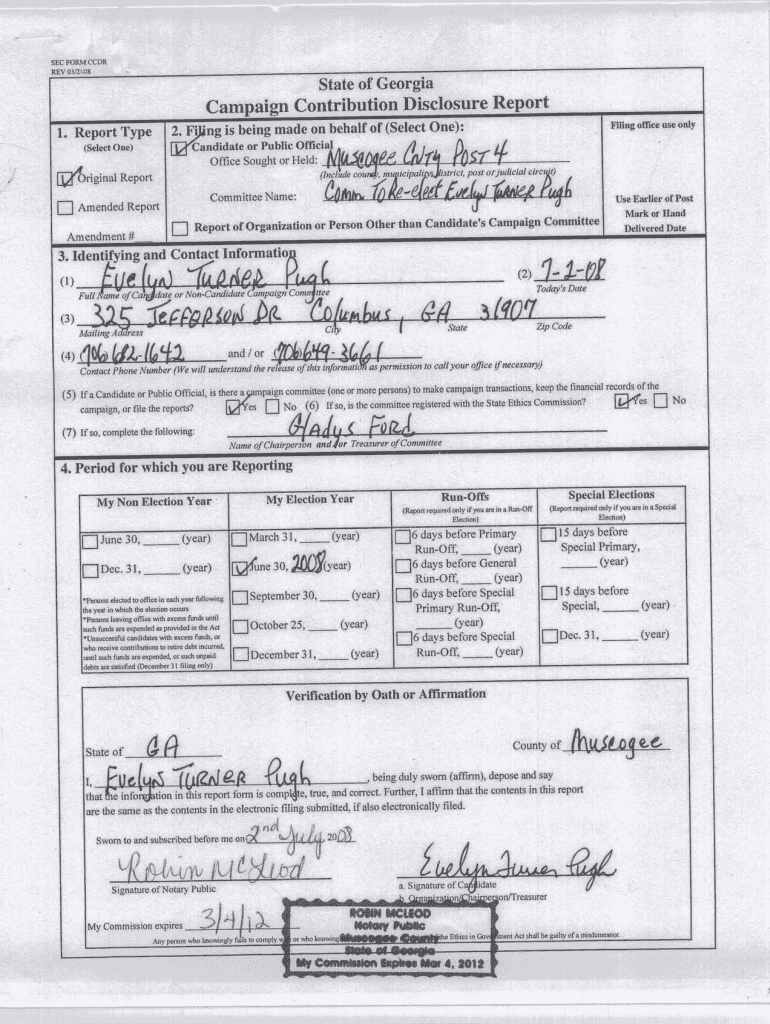 SEC FORM CCDR
REV 03/2008
State of Georgia
Campaign Contribution Disclosure Report
1. Report Type
(Select One)
Original Report
Amended Report
Amendment #
2. Filing is being made on behalf of (Select One):
Candidate or Public Official
Office Sought or Held: Muscogee Cnty Post 4
(Include county, municipality, district, post or judicial circuit)
Committee Name: Comm To Re-elect Evelyn Turner Pugh
Report of Organization or Person Other than Candidate's Campaign Committee
Filing office use only
Use Earlier of Post
Mark or Hand
Delivered Date
3. Identifying and Contact Information
(1) Evelyn Turner Pugh (2) 7-2-08
Full Name of Candidate or Non-Candidate Campaign Committee Today's Date
(3) 325 Jefferson Dr Columbus, GA 31907
Mailing Address City State Zip Code
(4) 706 682-1642 and / or 706 649-3661
Contact Phone Number (We will understand the release of this information as permission to call your office if necessary)
(5) If a Candidate or Public Official, is there a campaign committee (one or more persons) to make campaign transactions, keep the financial records of the
campaign, or file the reports? Yes No (6) If so, is the committee registered with the State Ethics Commission? Yes No
(7) If so, complete the following: Gladys Ford
Name of Chairperson and/or Treasurer of Committee
4. Period for which you are Reporting
My Non Election Year
June 30, ______ (year)
Dec. 31, ______ (year)
*Persons elected to office in each year following
the year in which the election occurs
*Persons leaving office with excess funds until
such funds are expended as provided in the Act
*Unsuccessful candidates with excess funds, or
who receive contributions to retire debt incurred,
until such funds are expended, or such unpaid
debts are satisfied (December 31 filing only)
My Election Year
March 31, _____ (year)
June 30, 2008 (year)
September 30, _____ (year)
October 25, _____ (year)
December 31, _____ (year)
Run-Offs
(Report required only if you are in a Run-Off
Election)
6 days before Primary
Run-Off, _____ (year)
6 days before General
Run-Off, _____ (year)
6 days before Special
Primary Run-Off,
______ (year)
6 days before Special
Run-Off, _____ (year)
Special Elections
(Report required only if you are in a Special
Election)
15 days before
Special Primary,
______ (year)
15 days before
Special, ______ (year)
Dec. 31, ______ (year)
Verification by Oath or Affirmation
State of GA County of Muscogee
I, Evelyn Turner Pugh, being duly sworn (affirm), depose and say
that the information in this report form is complete, true, and correct. Further, I affirm that the contents in this report
are the same as the contents in the electronic filing submitted, if also electronically filed.
Sworn to and subscribed before me on 2nd July, 2008
Robin McLeod Evelyn Turner Pugh
Signature of Notary Public a. Signature of Candidate
b. Organization/Chairperson/Treasurer
My Commission expires 3/4/12
Any person who knowingly fails to comply w or who knowing the Ethics in Government Act shall be guilty of a misdemeanor.
ROBIN MCLEOD
Notary Public
Muscogee County
State of Georgia
My Commission Expires Mar 4, 2012